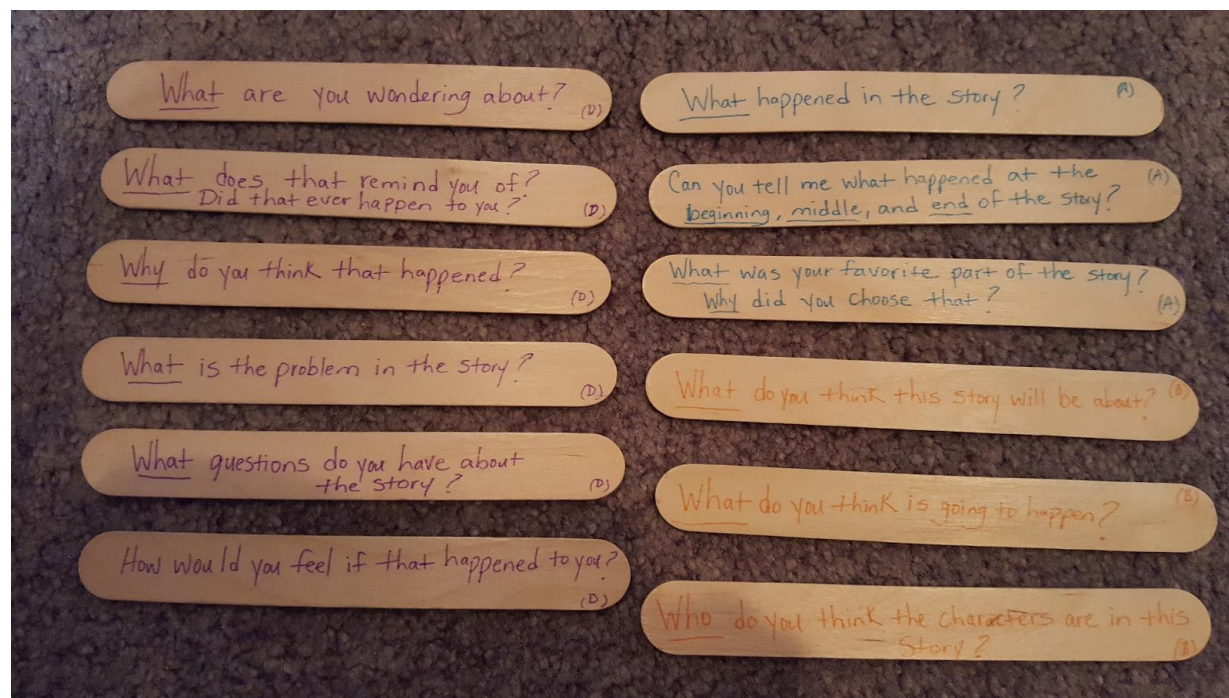 What are you wondering about?
(D)
What does that remind you of?
Did that ever happen to you?
(D)
Why do you think that happened?
(D)
What is the problem in the story?
(D)
What questions do you have about
the story?
(D)
How would you feel if that happened to you?
(D)
What happened in the story?
(A)
Can you tell me what happened at the
(A)
beginning, middle, and end of the story?
What was your favorite part of the story?
Why did you choose that?
(A)
What do you think this story will be about?
(B)
What do you think is going to happen?
(B)
Who do you think the characters are in this
story?
(B)